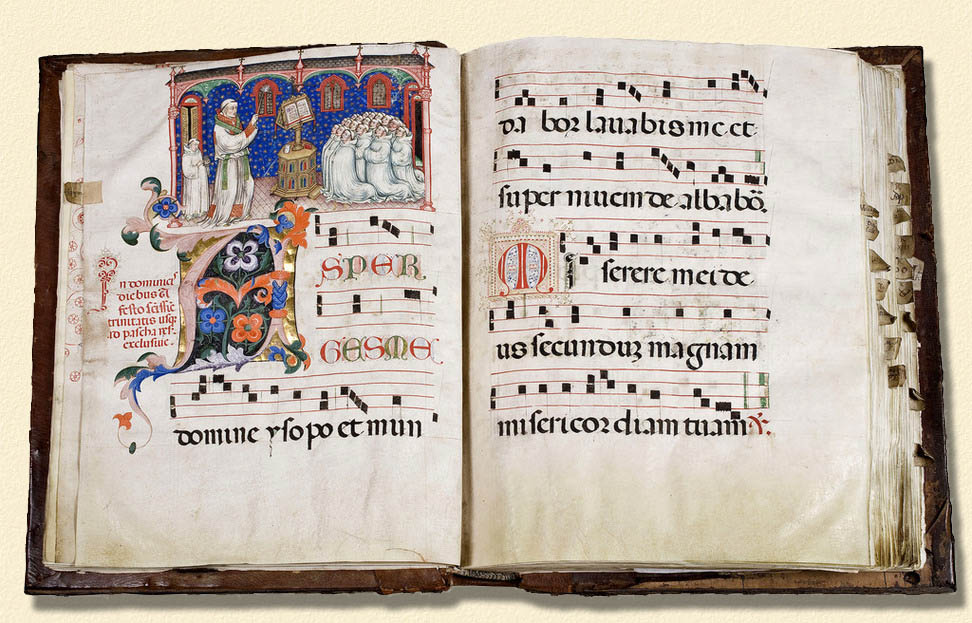 In dominicis
diebus a
festo sctissie
trinitatis usq
ad pascha res.
exclusive.
ASPER
GESME
domine ysopo et mun
da bor lavabis me et
super nivem de albabor.
Miserere mei de
us secunduz magnam
misericordiam tuam ℣.